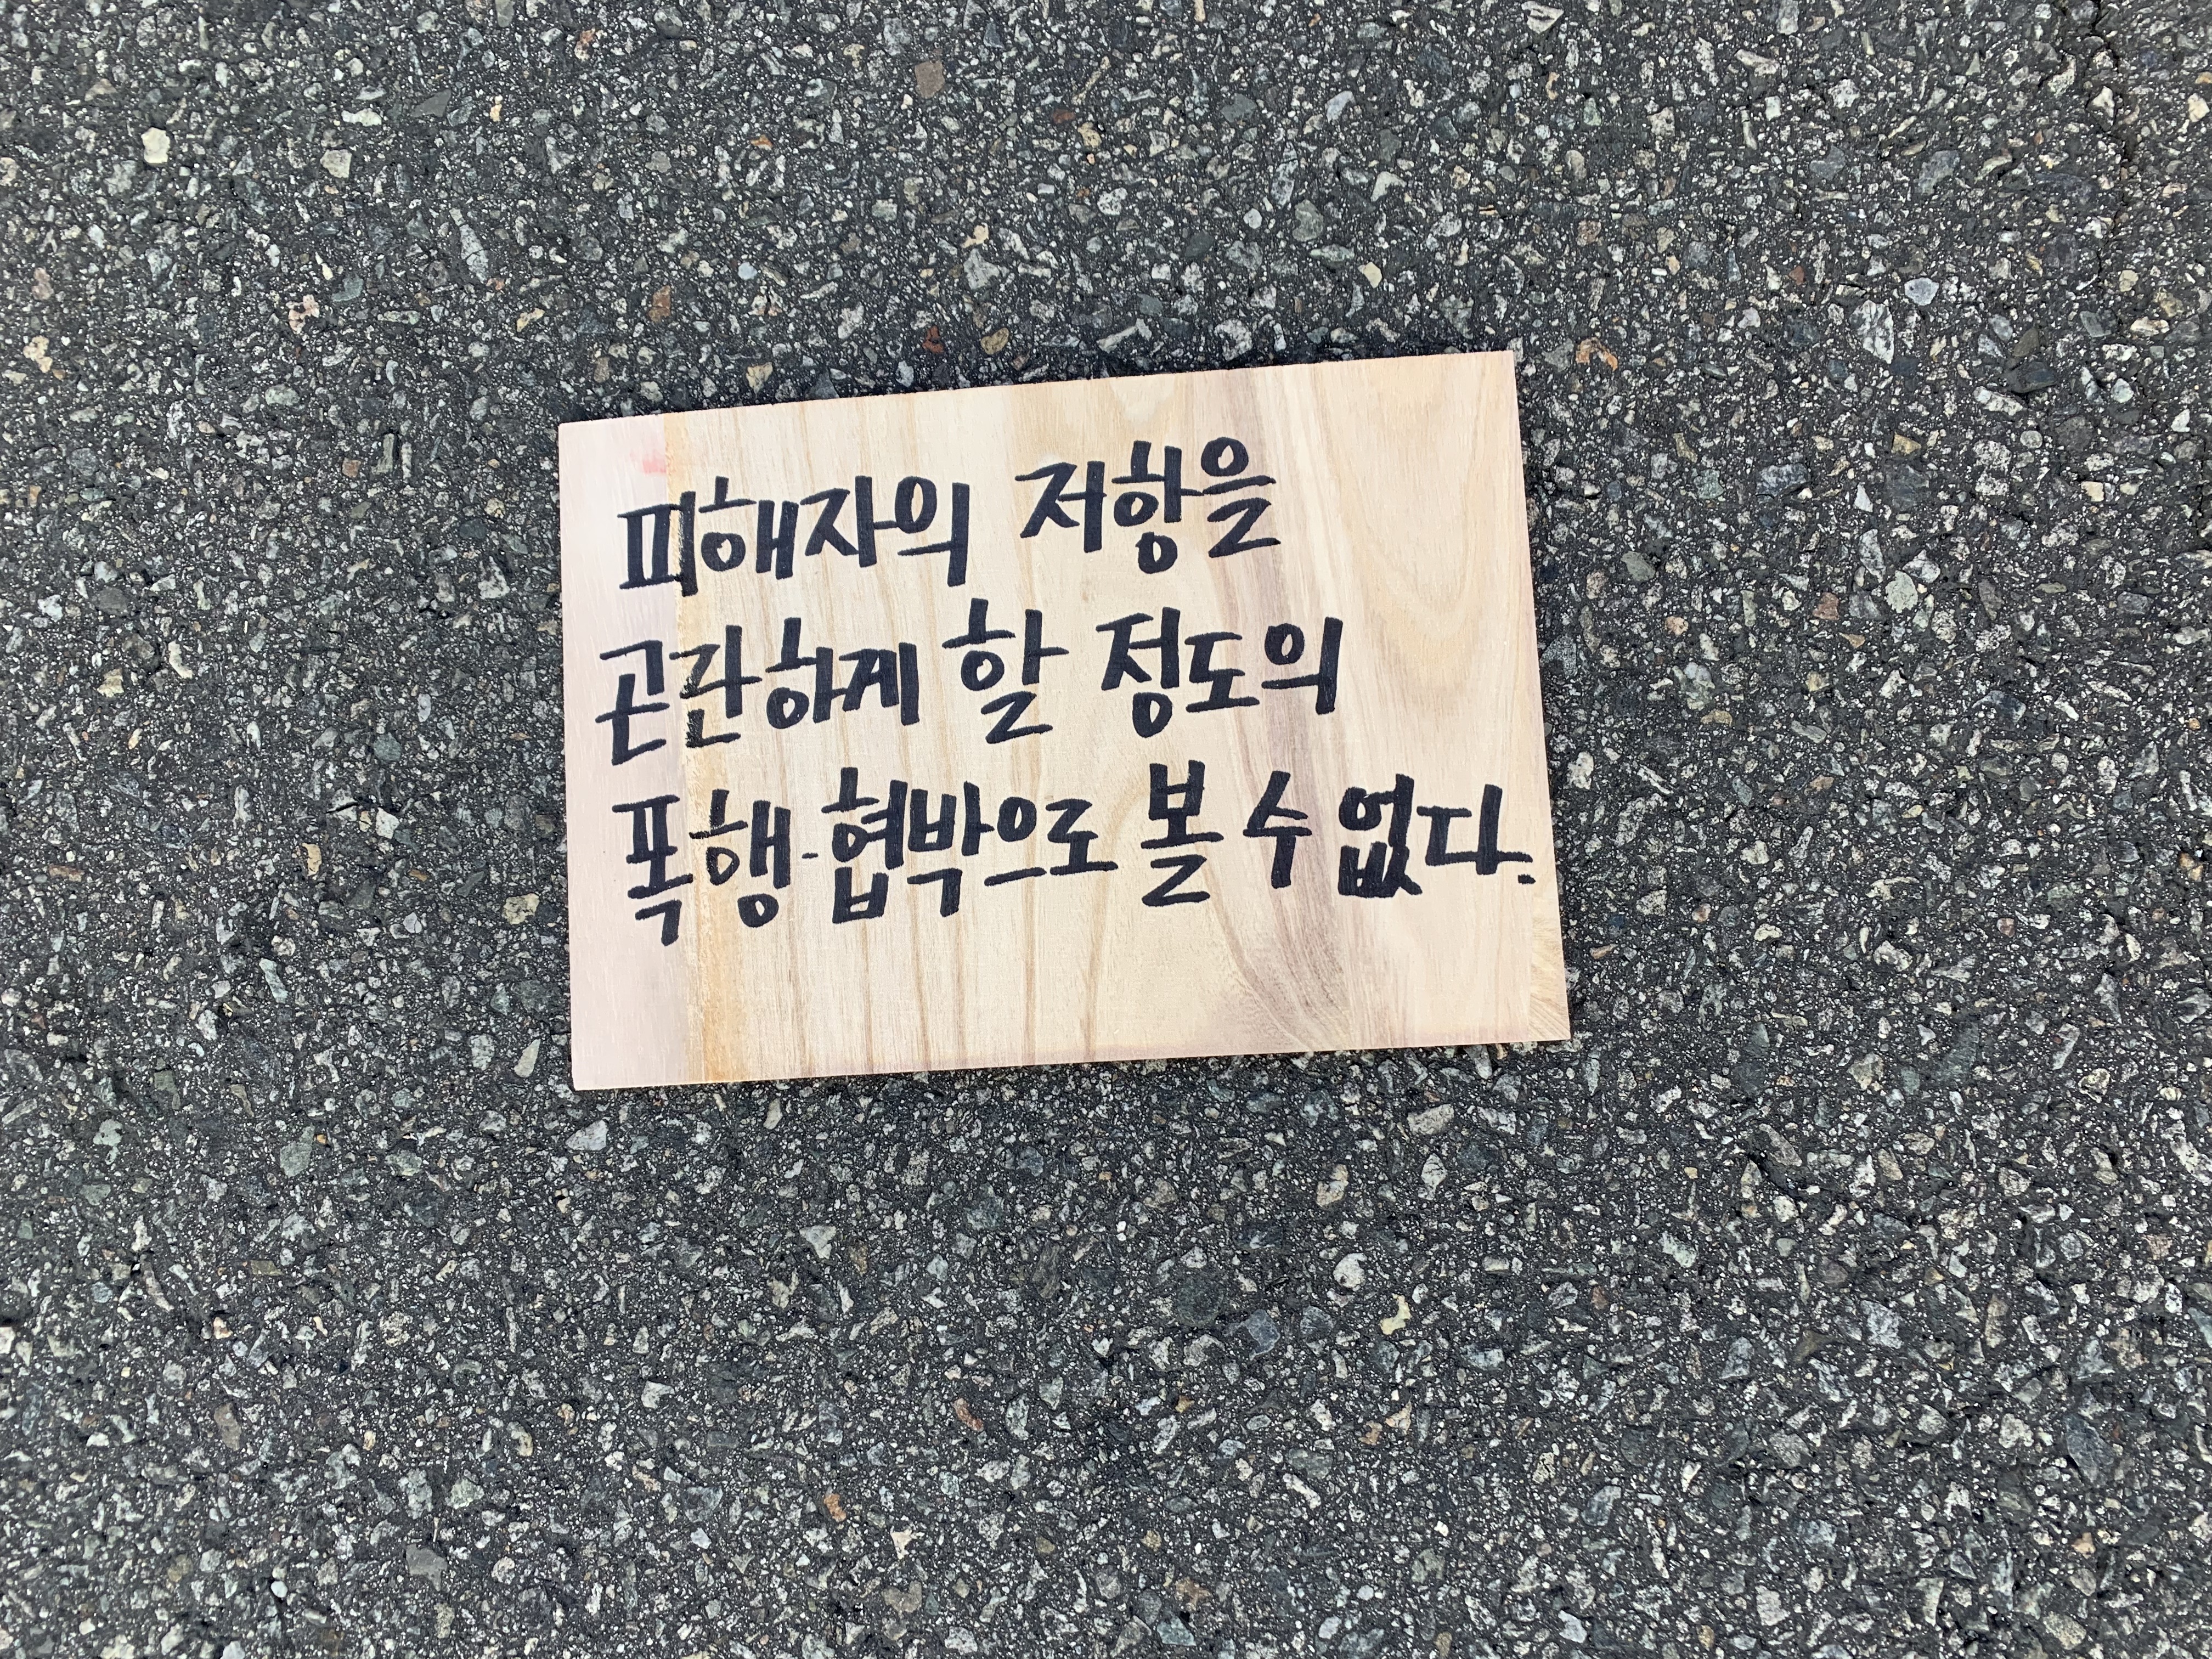 피해자의 저항을
곤란하게 할 정도의
폭행·협박으로 볼 수 없다.